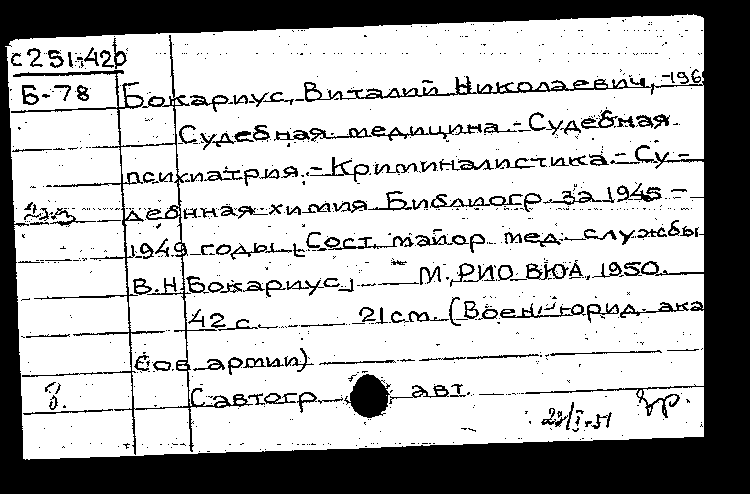 с251-420
Б-78 Бокариус, Виталий Николаевич, -196
Судебная медицина.-Судебная
психиатрия.-Криминалистика.-Су-
дебнная химия Библиогр. за 1945-
1949 годы [Сост. майор мед. службы
В.Н.Бокариус] М., РИО ВЮА, 1950.
42 с. 21 см. (Воен-юрид. ака
Сов. армии)
С автогр. авт.
22/I-51